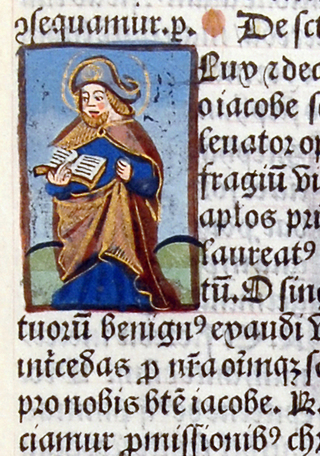 ꝯsequamur.p. De sct
Lux ⁊ dec
o iacobe s
seuator op
fragiū vi
apłos pri
laureatꝰ
tū. O sing
tuorū benignꝰ exaudi v
intcedas ꝓ nr̃a oĩmqꝫ s
pro nobis btē iacobe. ℞.
ciamur ꝓmissionibꝰ chr